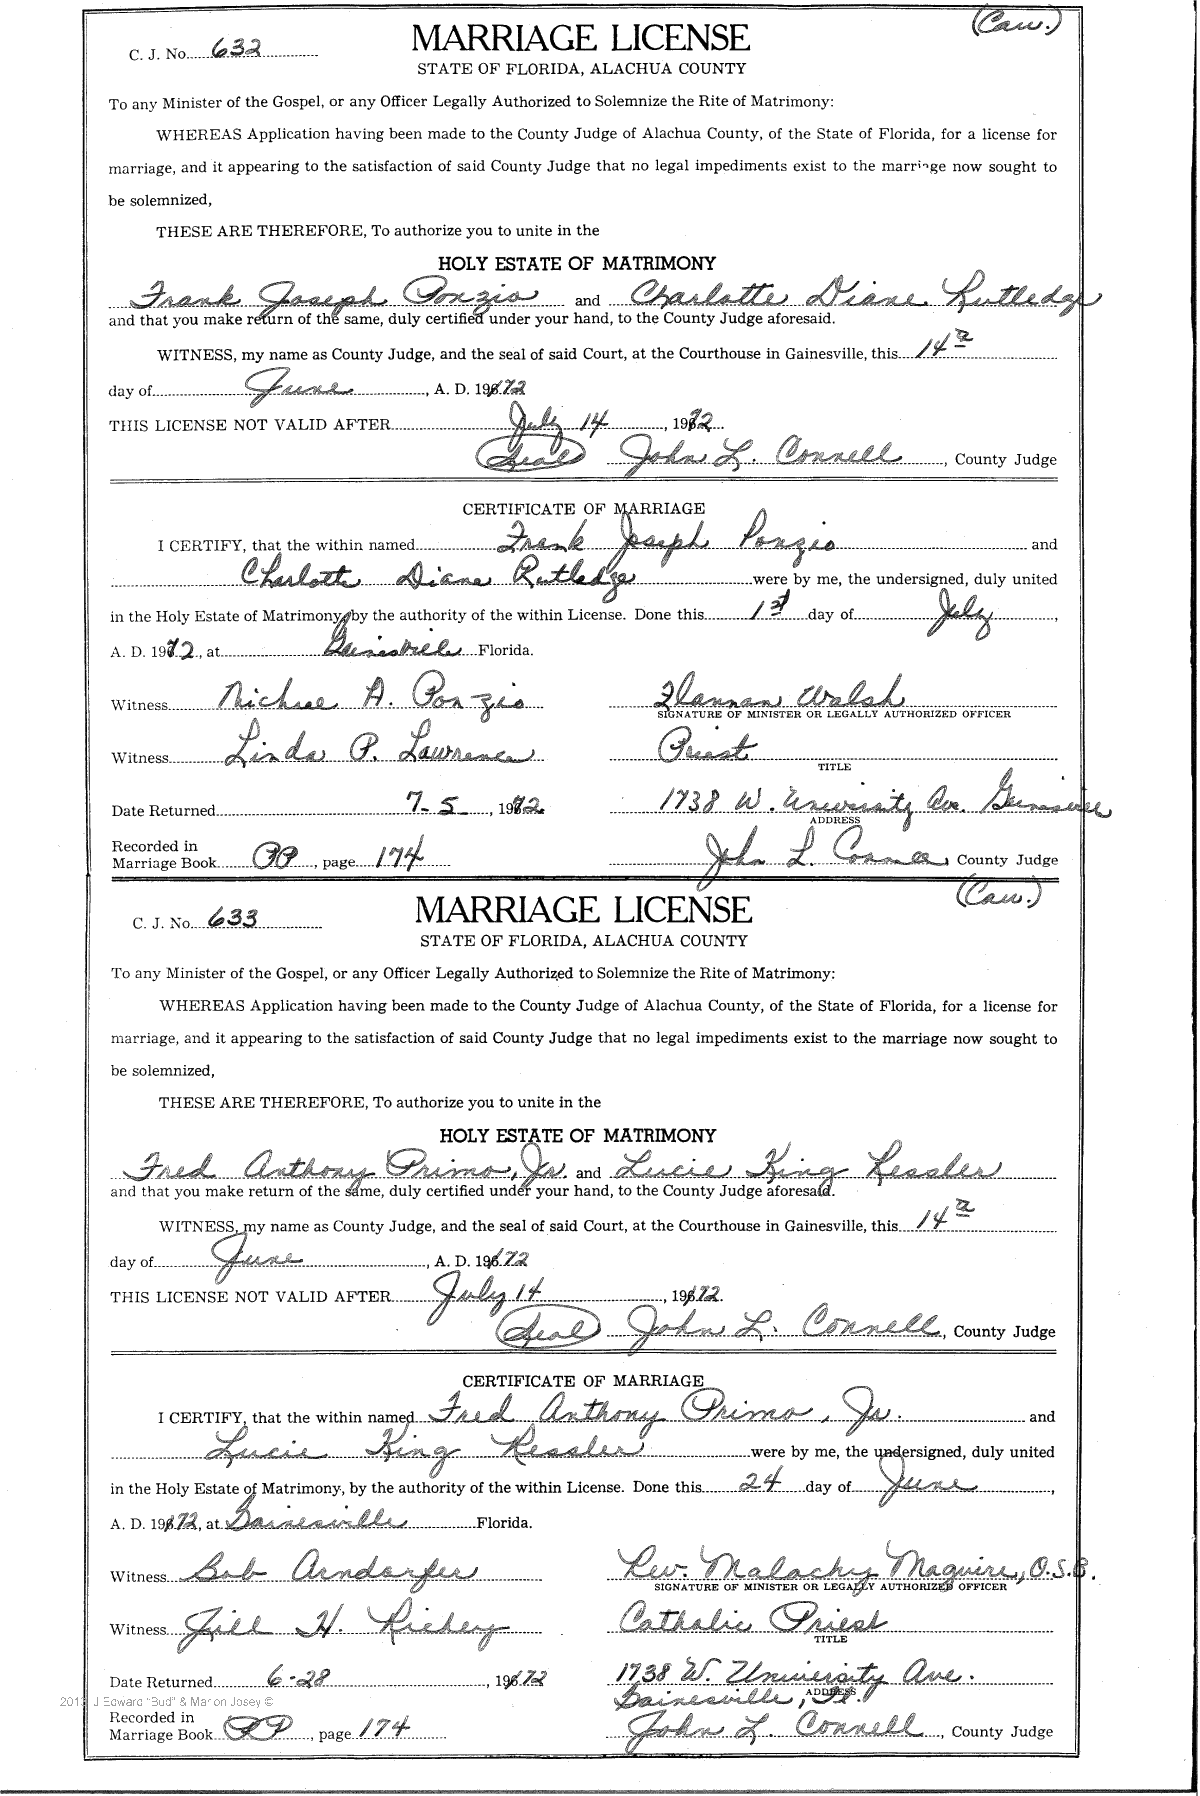 (Cau.)
C. J. No. 632 MARRIAGE LICENSE
STATE OF FLORIDA, ALACHUA COUNTY
To any Minister of the Gospel, or any Officer Legally Authorized to Solemnize the Rite of Matrimony:
WHEREAS Application having been made to the County Judge of Alachua County, of the State of Florida, for a license for
marriage, and it appearing to the satisfaction of said County Judge that no legal impediments exist to the marriage now sought to
be solemnized,
THESE ARE THEREFORE, To authorize you to unite in the
HOLY ESTATE OF MATRIMONY
Frank Joseph Ponzio and Charlotte Diane Rutledge
and that you make return of the same, duly certified under your hand, to the County Judge aforesaid.
WITNESS, my name as County Judge, and the seal of said Court, at the Courthouse in Gainesville, this 14th
day of June, A. D. 1972
THIS LICENSE NOT VALID AFTER July 14, 1972
(Seal) John L. Connell, County Judge
CERTIFICATE OF MARRIAGE
I CERTIFY, that the within named Frank Joseph Ponzio and
Charlotte Diane Rutledge were by me, the undersigned, duly united
in the Holy Estate of Matrimony, by the authority of the within License. Done this 1st day of July,
A. D. 1972, at Gainesville Florida.
Witness Michael A. Ponzio Flannan Walsh
SIGNATURE OF MINISTER OR LEGALLY AUTHORIZED OFFICER
Witness Linda P. Lawrence Priest
TITLE
Date Returned 7-5, 1972 1738 W. University Ave. Gainesville
ADDRESS
Recorded in
Marriage Book PP, page 174 John L. Connell, County Judge
(Cau.)
C. J. No. 633 MARRIAGE LICENSE
STATE OF FLORIDA, ALACHUA COUNTY
To any Minister of the Gospel, or any Officer Legally Authorized to Solemnize the Rite of Matrimony:
WHEREAS Application having been made to the County Judge of Alachua County, of the State of Florida, for a license for
marriage, and it appearing to the satisfaction of said County Judge that no legal impediments exist to the marriage now sought to
be solemnized,
THESE ARE THEREFORE, To authorize you to unite in the
HOLY ESTATE OF MATRIMONY
Fred Anthony Primo, Jr. and Lucie King Kessler
and that you make return of the same, duly certified under your hand, to the County Judge aforesaid.
WITNESS, my name as County Judge, and the seal of said Court, at the Courthouse in Gainesville, this 14th
day of June, A. D. 1972
THIS LICENSE NOT VALID AFTER July 14, 1972.
(Seal) John L. Connell, County Judge
CERTIFICATE OF MARRIAGE
I CERTIFY, that the within named Fred Anthony Primo, Jr. and
Lucie King Kessler were by me, the undersigned, duly united
in the Holy Estate of Matrimony, by the authority of the within License. Done this 24 day of June,
A. D. 1972, at Gainesville Florida.
Witness Bob Arndorfer Rev. Malachy Maguire, O.S.B.
SIGNATURE OF MINISTER OR LEGALLY AUTHORIZED OFFICER
Witness Jill H. Richey Catholic Priest
TITLE
Date Returned 6-28, 1972 1738 W. University Ave.
ADDRESS
Gainesville, Fl.
2013 J Edward "Bud" & Marion Josey ©
Recorded in
Marriage Book PP, page 174 John L. Connell, County Judge